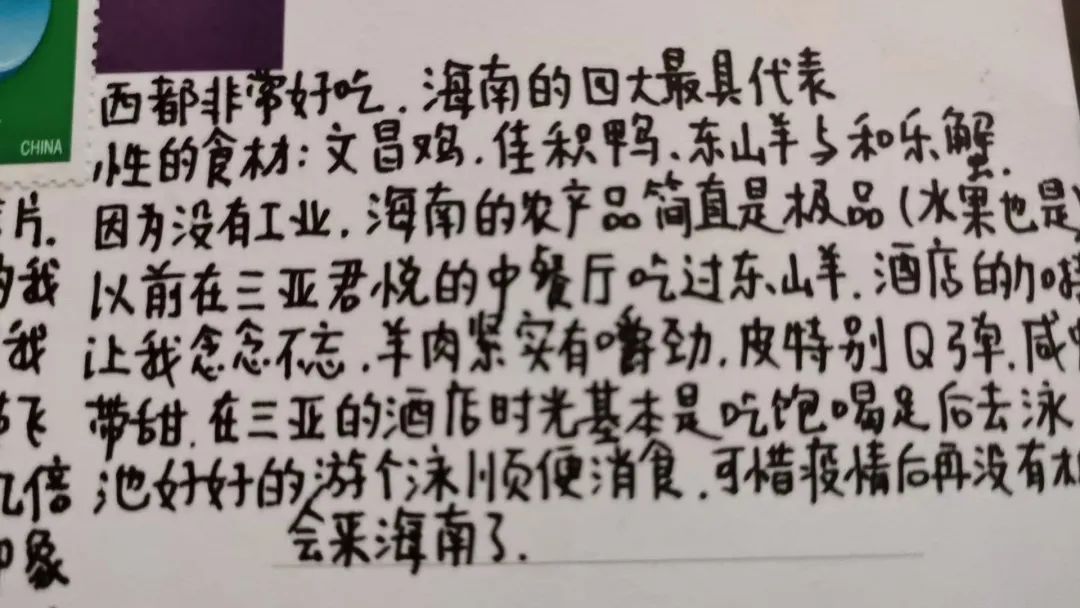 CHINA
西都非常好吃.海南的四大最具代表
性的食材:文昌鸡.佳积鸭、东山羊与和乐蟹.
因为没有工业.海南的农产品简直是极品(水果也是)
片.
以前在三亚君悦的中餐厅吃过东山羊.酒店的加
的我
让我念念不忘.羊肉紧实有嚼劲.皮特别Q弹.咸
我
带甜.在三亚的酒店时光基本是吃饱喝足后去泳
飞
池好好的游个泳顺便消食.可惜疫情后再没有
倍
会来海南了.
印象